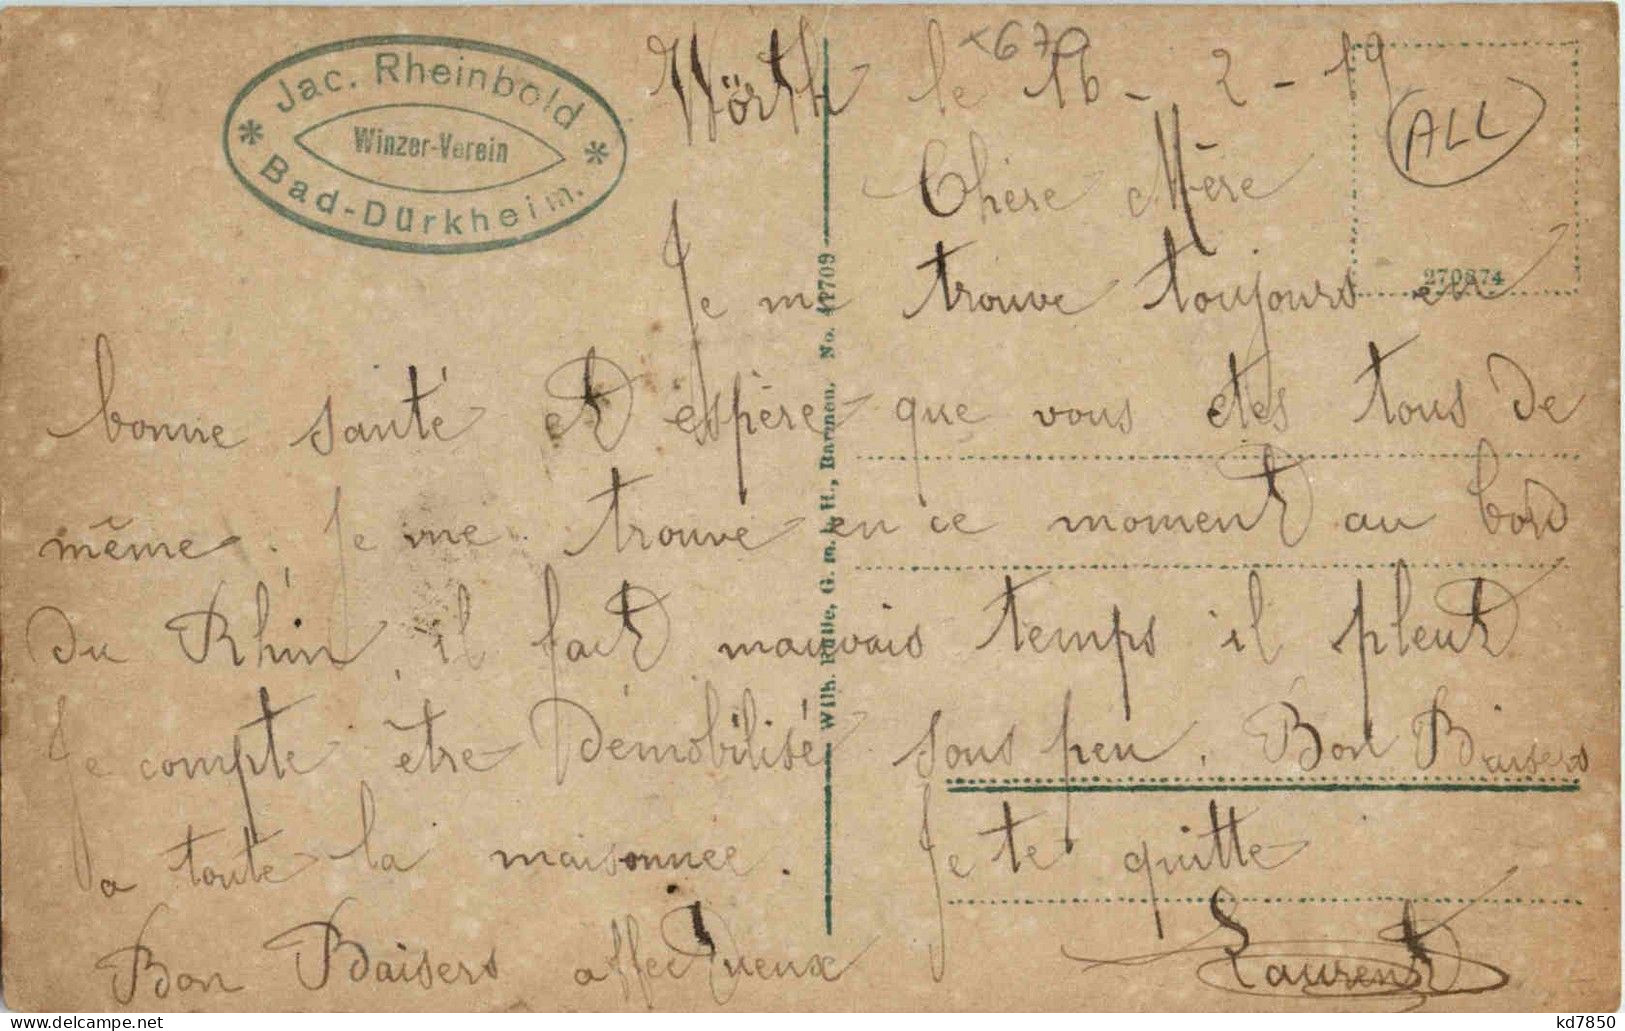 Jac. Rheinbold
Winzer-Verein
Bad-Dürkheim.
x679
Wörth le 16 - 2 - 19
ALL
Chère Mère
270874
Je me trouve toujours en
bonne santé et espère que vous etes tous de
même. Je me trouve en ce moment au bord
du Rhin, il fait mauvais temps il pleut
Je compte être démobilisé sous peu. Bon Baisers
a toute la maisonnee. Je te quitte
Bon Baisers affectueux Laurent
No. 41709
G. m. b. H., Barmen.
kd7850